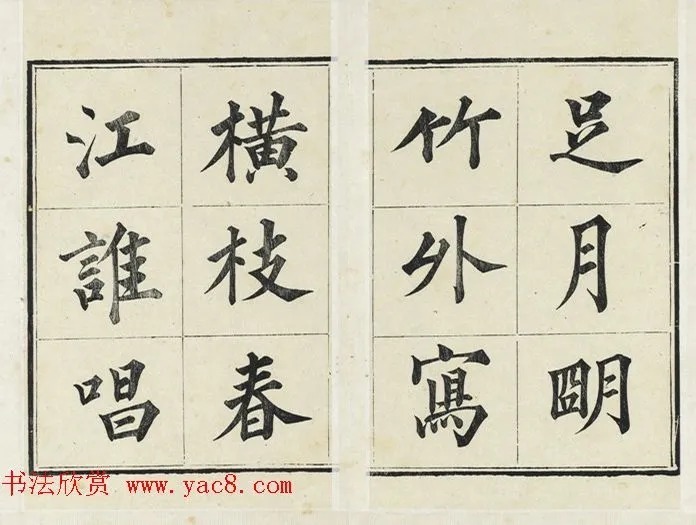 足月朙
竹外寫
橫枝春
江誰唱
书法欣赏 www.yac8.com